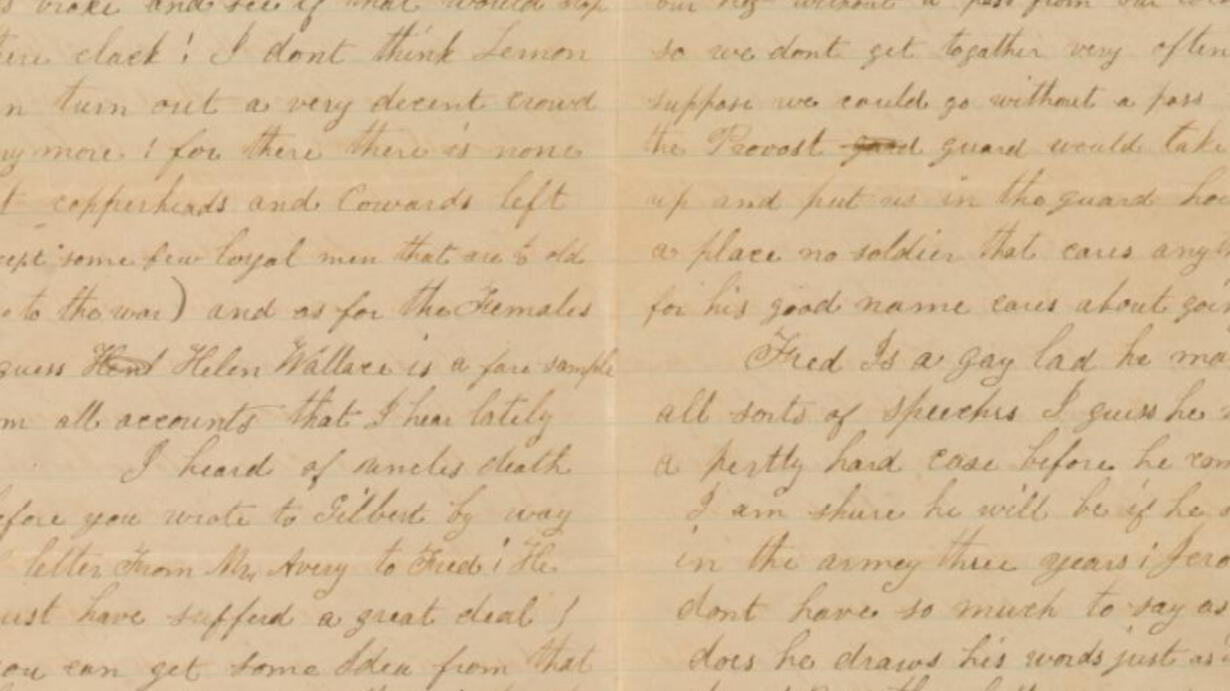 broke and see if what would stop
clack ! I dont think Lemon
turn out a very decent crowd
more ! for there there is none
copperheads and Cowards left
some few loyal men that are to old
to the war) and as for the Females
guess Helen Wallace is a fare sample
all accounts that I hear lately
I heard of uncles death
you wrote to Gilbert by way
letter From Mr. Avery to Fred ! He
have sufferd a great deal !
can get some Idea from that
without a pass from our
so we dont get togather very often
suppose we could go without a pass
the Provost guard would take
up and put us in the guard
a place no soldier that cares
for his good name cares about
Fred Is a gay lad he
all sorts of speeches I guess he
a pertly hard case before he
I am shure he will be if he
in the armey three years !
dont have so much to say as
does he draws his words just as